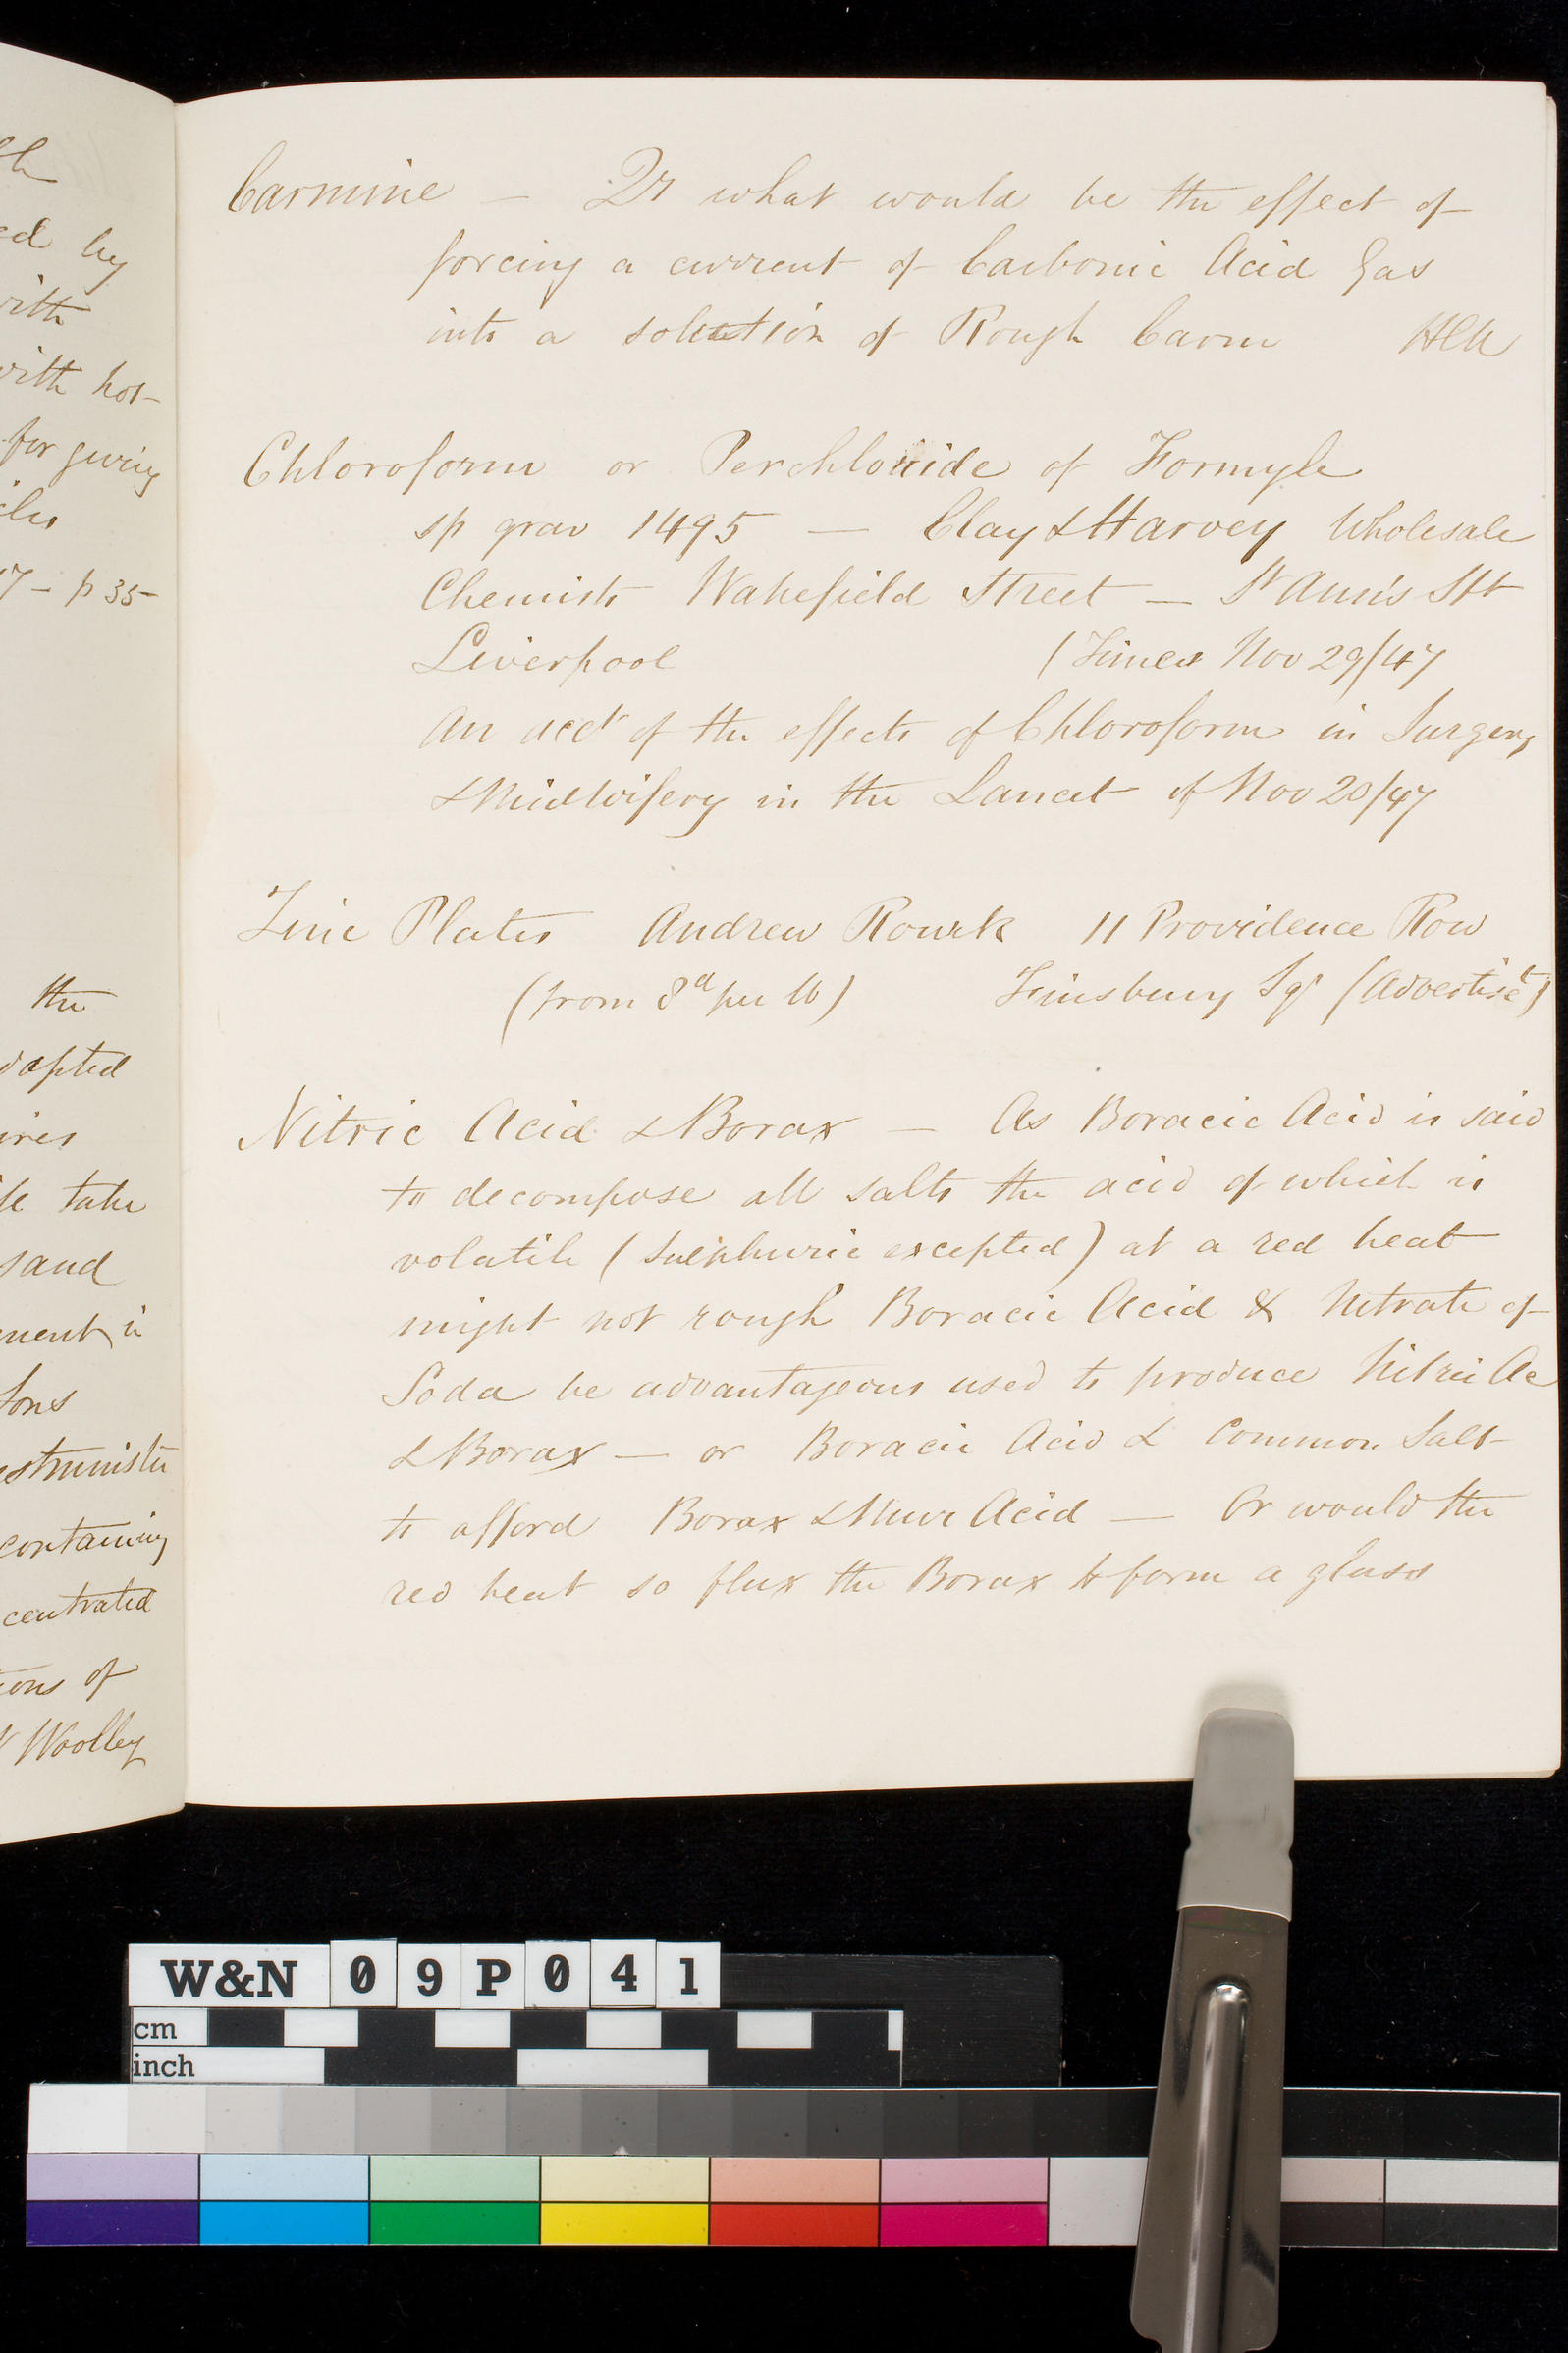 th
ed by
with
with hot
for giving
cles
17 - p 35
the
dapted
ires
take
sand
ment is
Sons
estminster
containing
centrated
ions of
Woolley
Carmine - Qy what would be the effect of
forcing a current of Carbonic Acid Gas
into a solution of Rough Carm
Chloroform or Perchloride of Formyle
sp grav 1495 - Clay & Harvey Wholesale
Chemists Wakefield Street - St Ann's Stt
Liverpool (Times Nov 29/47
An acct of the effects of Chloroform in Surgery
& Midwifery in the Lancet of Nov 20/47
Zinc Plates Andrew Rourk 11 Providence Row
(from 8d per lb) Finsbury Sqr (Advertiset)
Nitric Acid & Borax - As Boracic Acid is said
to decompose all salts the acid of which is
volatile (Sulphuric excepted) at a red heat
might not rough Boracic Acid & Nitrate of
Soda be advantageous used to produce Nitric Ac
& Borax - or Boracic Acid & Common Salt
to afford Borax & Mur Acid - Or would the
red heat so flux the Borax to form a glass
W&N 09P041
cm
inch